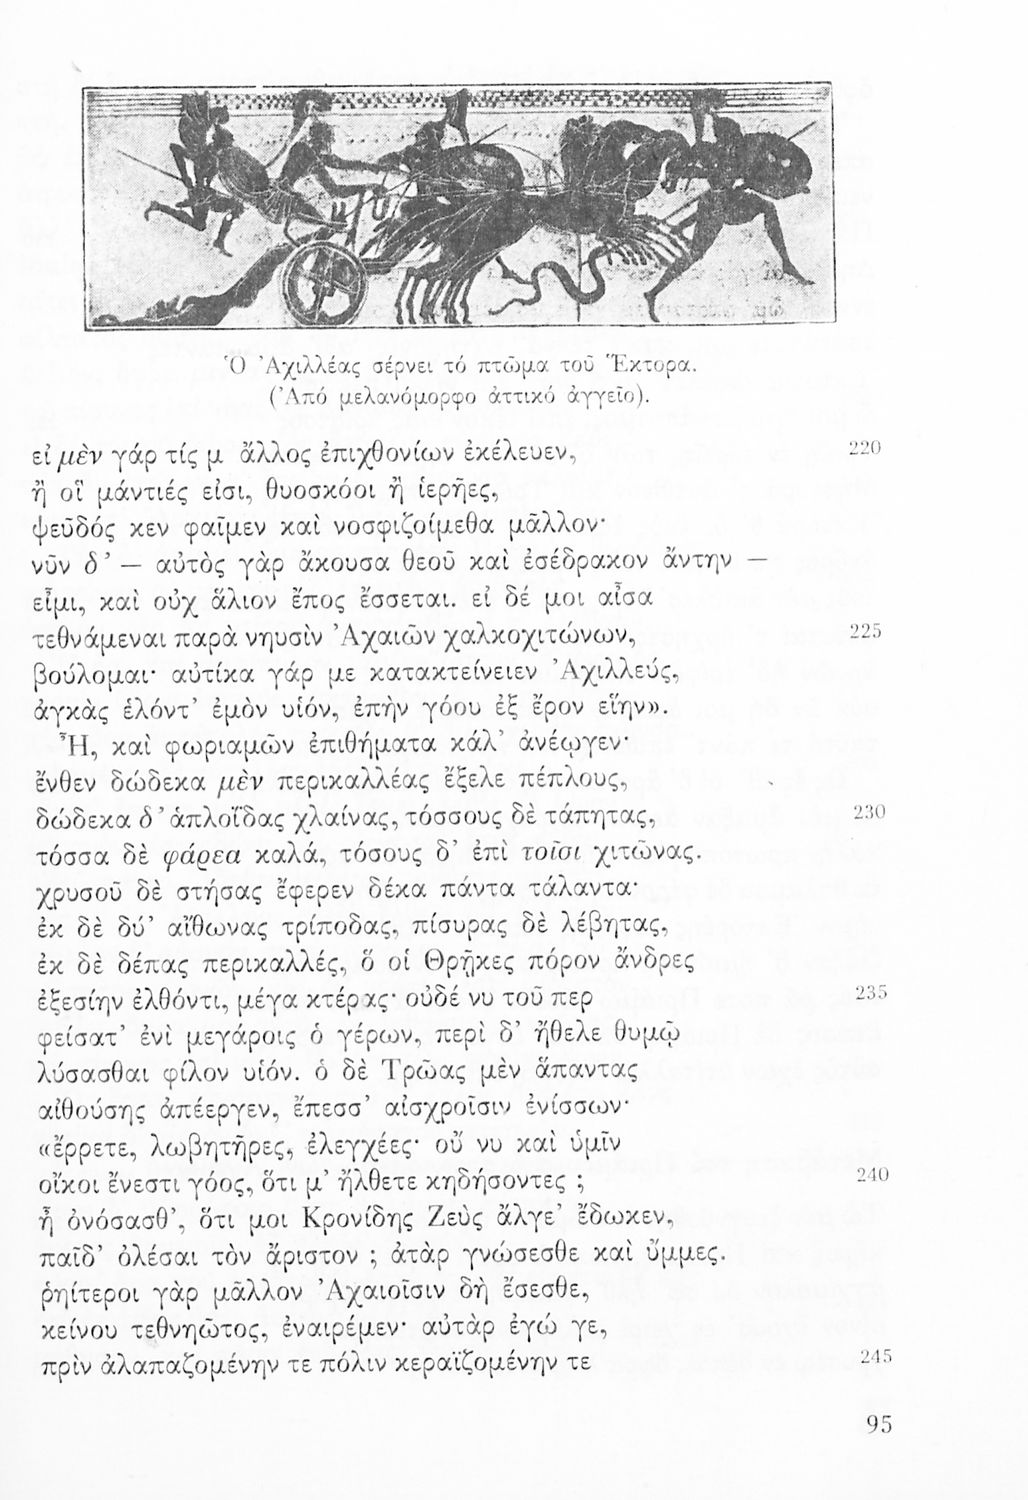 Ὁ Ἀχιλλέας σέρνει τό πτῶμα τοῦ Ἕκτορα.
(Ἀπό μελανόμορφο ἀττικό ἀγγεῖο).
εἰ μὲν γάρ τίς μ ἄλλος ἐπιχθονίων ἐκέλευεν, 220
ἢ οἳ μάντιές εἰσι, θυοσκόοι ἢ ἱερῆες,
ψεῦδός κεν φαῖμεν καὶ νοσφιζοίμεθα μᾶλλον·
νῦν δ’ — αὐτὸς γὰρ ἄκουσα θεοῦ καὶ ἐσέδρακον ἄντην —
εἶμι, καὶ οὐχ ἅλιον ἔπος ἔσσεται. εἰ δέ μοι αἶσα
τεθνάμεναι παρὰ νηυσὶν Ἀχαιῶν χαλκοχιτώνων, 225
βούλομαι· αὐτίκα γάρ με κατακτείνειεν Ἀχιλλεύς,
ἀγκὰς ἑλόντ’ ἐμὸν υἱόν, ἐπὴν γόου ἐξ ἔρον εἵην».
Ἦ, καὶ φωριαμῶν ἐπιθήματα κάλ’ ἀνέῳγεν·
ἔνθεν δώδεκα μὲν περικαλλέας ἔξελε πέπλους,
δώδεκα δ’ ἁπλοΐδας χλαίνας, τόσσους δὲ τάπητας, 230
τόσσα δὲ φάρεα καλά, τόσους δ’ ἐπὶ τοῖσι χιτῶνας.
χρυσοῦ δὲ στήσας ἔφερεν δέκα πάντα τάλαντα·
ἐκ δὲ δύ’ αἴθωνας τρίποδας, πίσυρας δὲ λέβητας,
ἐκ δὲ δέπας περικαλλές, ὅ οἱ Θρῇκες πόρον ἄνδρες
ἐξεσίην ἐλθόντι, μέγα κτέρας· οὐδέ νυ τοῦ περ 235
φείσατ’ ἐνὶ μεγάροις ὁ γέρων, περὶ δ’ ἤθελε θυμῷ
λύσασθαι φίλον υἱόν. ὁ δὲ Τρῶας μὲν ἅπαντας
αἰθούσης ἀπέεργεν, ἔπεσσ’ αἰσχροῖσιν ἐνίσσων·
«ἔρρετε, λωβητῆρες, ἐλεγχέες· οὔ νυ καὶ ὑμῖν
οἴκοι ἔνεστι γόος, ὅτι μ’ ἤλθετε κηδήσοντες ; 240
ἦ ὀνόσασθ’, ὅτι μοι Κρονίδης Ζεὺς ἄλγε’ ἔδωκεν,
παῖδ’ ὀλέσαι τὸν ἄριστον ; ἀτὰρ γνώσεσθε καὶ ὔμμες.
ῥηίτεροι γὰρ μᾶλλον Ἀχαιοῖσιν δὴ ἔσεσθε,
κείνου τεθνηῶτος, ἐναιρέμεν· αὐτὰρ ἐγώ γε,
πρὶν ἀλαπαζομένην τε πόλιν κεραϊζομένην τε 245
95